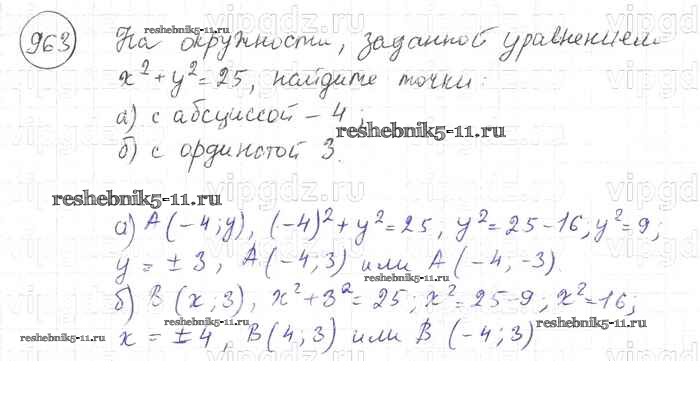 963 На окружности, заданной уравнением
x² + y² = 25, найдите точки:
а) с абсциссой – 4;
б) с ординатой 3.
reshebnik5-11.ru
reshebnik5-11.ru
а) A(–4; y), (–4)² + y² = 25; y² = 25 – 16; y² = 9;
y = ± 3, A(–4; 3) или A(–4; –3).
б) B(x; 3), x² + 3² = 25; x² = 25 – 9; x² = 16;
x = ± 4, B(4; 3) или B(–4; 3)
reshebnik5-11.ru
reshebnik5-11.ru
reshebnik5-11.ru
reshebnik5-11.ru
vipgdz.ru